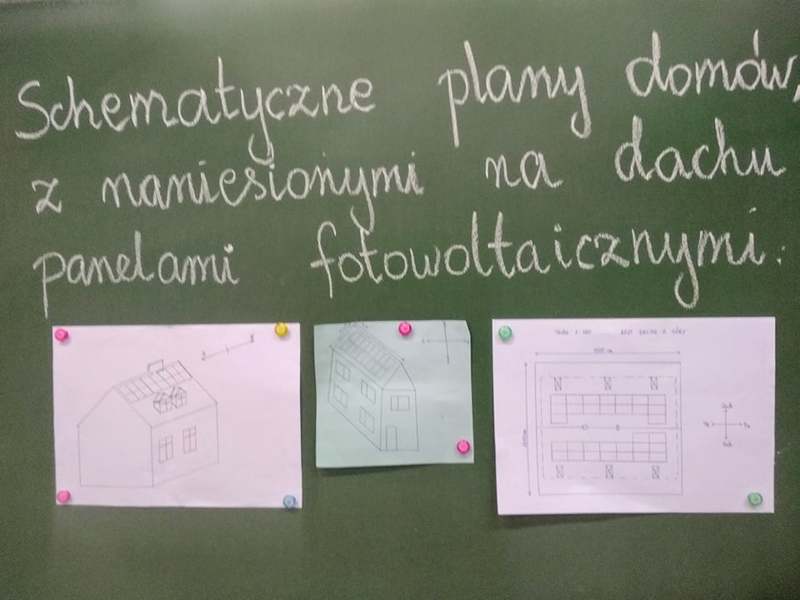 Schematyczne plany domów,
z naniesionymi na dachu
panelami fotowoltaicznymi.